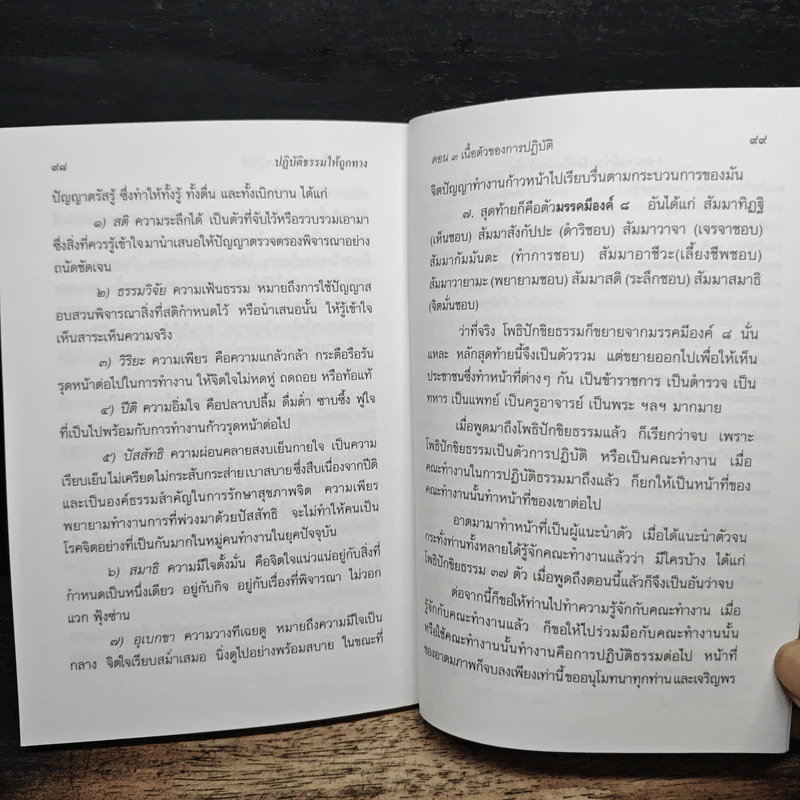 ๙๘ ปฏิบัติธรรมให้ถูกทาง
ปัญญาตรัสรู้ ซึ่งทำให้ทั้งรู้ ทั้งตื่น และทั้งเบิกบาน ได้แก่
๑) สติ ความระลึกได้ เป็นตัวที่จับไว้หรือรวบรวมเอามา
ซึ่งสิ่งที่ควรรู้เข้าใจมานำเสนอให้ปัญญาตรวจตรองพิจารณาอย่าง
ถนัดชัดเจน
๒) ธรรมวิจัย ความเฟ้นธรรม หมายถึงการใช้ปัญญาส
อบสวนพิจารณาสิ่งที่สติกำหนดไว้ หรือนำเสนอนั้น ให้รู้เข้าใจ
เห็นสาระเห็นความจริง
๓) วิริยะ ความเพียร คือความแกล้วกล้า กระตือรือร้น
รุดหน้าต่อไปในการทำงาน ให้จิตใจไม่หดหู่ ถดถอย หรือท้อแท้
๔) ปีติ ความอิ่มใจ คือปลาบปลื้ม ดื่มด่ำ ซาบซึ้ง ฟูใจ
ที่เป็นไปพร้อมกับการทำงานก้าวรุดหน้าต่อไป
๕) ปัสสัทธิ ความผ่อนคลายสงบเย็นกายใจ เป็นความ
เรียบเย็นไม่เครียดไม่กระสับกระส่าย เบาสบาย ซึ่งสืบเนื่องจากปีติ
และเป็นองค์ธรรมสำคัญในการรักษาสุขภาพจิต ความเพียร
พยายามทำงานการที่พ่วงมาด้วยปัสสัทธิ จะไม่ทำให้คนเป็น
โรคจิตอย่างที่เป็นกันมากในหมู่คนทำงานในยุคปัจจุบัน
๖) สมาธิ ความมีใจตั้งมั่น คือจิตใจแน่วแน่อยู่กับสิ่งที่
กำหนดเป็นหนึ่งเดียว อยู่กับกิจ อยู่กับเรื่องที่พิจารณา ไม่วอก
แวก ฟุ้งซ่าน
๗) อุเบกขา ความวางทีเฉยดู หมายถึงความมีใจเป็น
กลาง จิตใจเรียบสม่ำเสมอ นิ่งดูไปอย่างพร้อมสบาย ในขณะที่
ตอน ๓ เนื้อตัวของการปฏิบัติ ๙๙
จิตปัญญาทำงานก้าวหน้าไปเรียบรื่นตามกระบวนการของมัน
๗. สุดท้ายก็คือตัวมรรคมีองค์ ๘ อันได้แก่ สัมมาทิฏฐิ
(เห็นชอบ) สัมมาสังกัปปะ (ดำริชอบ) สัมมาวาจา (เจรจาชอบ)
สัมมากัมมันตะ (ทำการชอบ) สัมมาอาชีวะ(เลี้ยงชีพชอบ)
สัมมาวายามะ (พยายามชอบ) สัมมาสติ (ระลึกชอบ) สัมมาสมาธิ
(จิตมั่นชอบ)
ว่าที่จริง โพธิปักขิยธรรมก็ขยายจากมรรคมีองค์ ๘ นั่น
แหละ หลักสุดท้ายนี้จึงเป็นตัวรวม แต่ขยายออกไปเพื่อให้เห็น
ประชาชนซึ่งทำหน้าที่ต่างๆ กัน เป็นข้าราชการ เป็นตำรวจ เป็น
ทหาร เป็นแพทย์ เป็นครูอาจารย์ เป็นพระ ฯลฯ มากมาย
เมื่อพูดมาถึงโพธิปักขิยธรรมแล้ว ก็เรียกว่าจบ เพราะ
โพธิปักขิยธรรมเป็นตัวการปฏิบัติ หรือเป็นคณะทำงาน เมื่อ
คณะทำงานในการปฏิบัติธรรมมาถึงแล้ว ก็ยกให้เป็นหน้าที่ของ
คณะทำงานนั้นทำหน้าที่ของเขาต่อไป
อาตมามาทำหน้าที่เป็นผู้แนะนำตัว เมื่อได้แนะนำตัวจน
กระทั่งท่านทั้งหลายได้รู้จักคณะทำงานแล้วว่า มีใครบ้าง ได้แก่
โพธิปักขิยธรรม ๓๗ ตัว เมื่อพูดถึงตอนนี้แล้วก็จึงเป็นอันว่าจบ
ต่อจากนี้ก็ขอให้ท่านไปทำความรู้จักกับคณะทำงาน เมื่อ
รู้จักกับคณะทำงานแล้ว ก็ขอให้ไปร่วมมือกับคณะทำงานนั้น
หรือใช้คณะทำงานนั้นทำงานคือการปฏิบัติธรรมต่อไป หน้าที่
ของอาตมภาพก็จบลงเพียงเท่านี้ ขออนุโมทนาทุกท่าน และเจริญพร